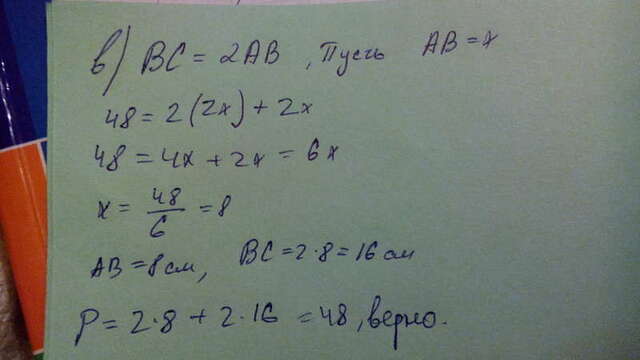 в) BC = 2AB, Пусть AB = x
48 = 2(2x) + 2x
48 = 4x + 2x = 6x
x = 48/6 = 8
AB = 8 см, BC = 2·8 = 16 см
P = 2·8 + 2·16 = 48, верно.